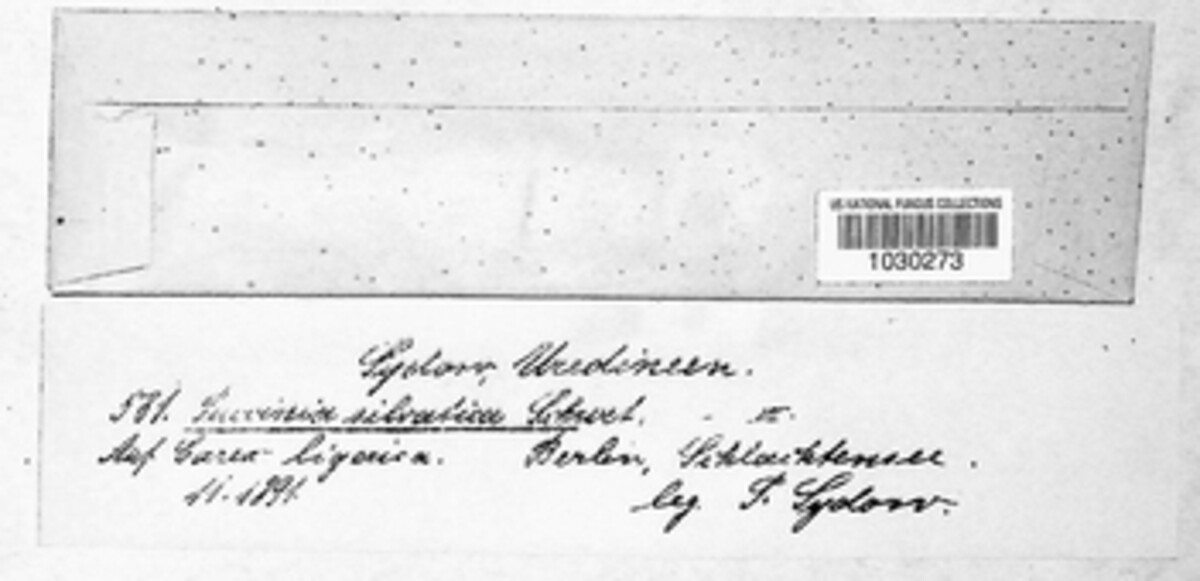 US NATIONAL FUNGUS COLLECTIONS
1030273
Sydow, Uredineen.
581. Puccinia silvatica Schroet. - III.
Auf Carex ligerica. Berlin, Schlachtensee.
11. 1891. leg. P. Sydow.